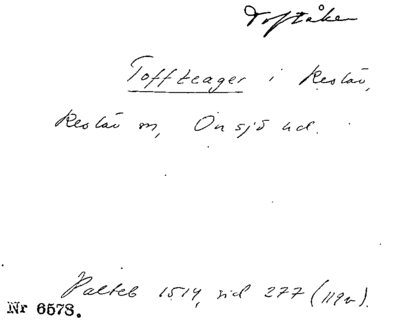 Toftåker
Toffteager i Reslöv,
Reslöv sn, Onsjö hd.
Palteb 1514, sid 277 (119v).
Nr 6578.